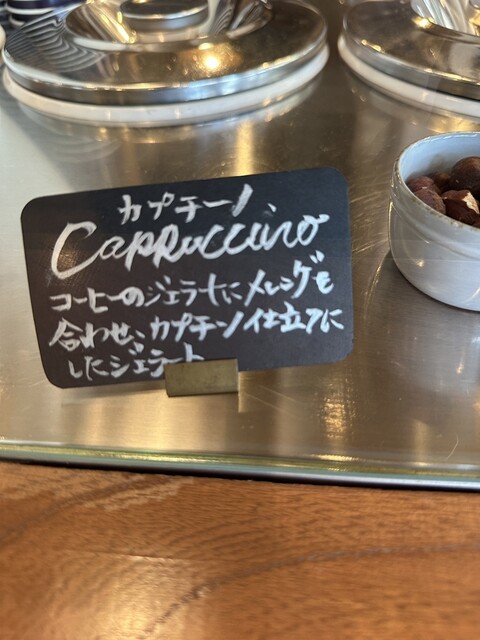 カプチーノ
Cappuccino
コーヒーのジェラートにメレンゲも
合わせ、カプチーノ仕立てに
したジェラート